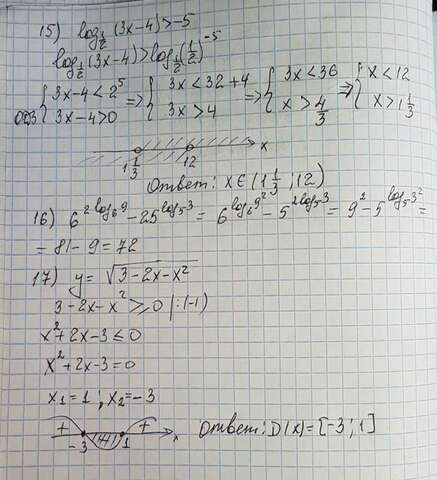 15) log_{1/2} (3x-4) > -5
log_{1/2} (3x-4) > log_{1/2} (1/2)^{-5}
ОДЗ { 3x-4 < 2^5 ; 3x-4 > 0 => { 3x < 32+4 ; 3x > 4 => { 3x < 36 ; x > 4/3 => { x < 12 ; x > 1 1/3
1 1/3 12 x
Ответ: x ∈ (1 1/3 ; 12)
16) 6^{2 log_6 9} - 25^{log_5 3} = 6^{log_6 9^2} - 5^{2 log_5 3} = 9^2 - 5^{log_5 3^2} =
= 81 - 9 = 72
17) y = √(3-2x-x²)
3-2x-x² ≥ 0 |:(-1)
x²+2x-3 ≤ 0
x²+2x-3=0
x₁=1 ; x₂=-3
+ -3 (-) 1 + x Ответ: D(x)=[-3 ; 1]